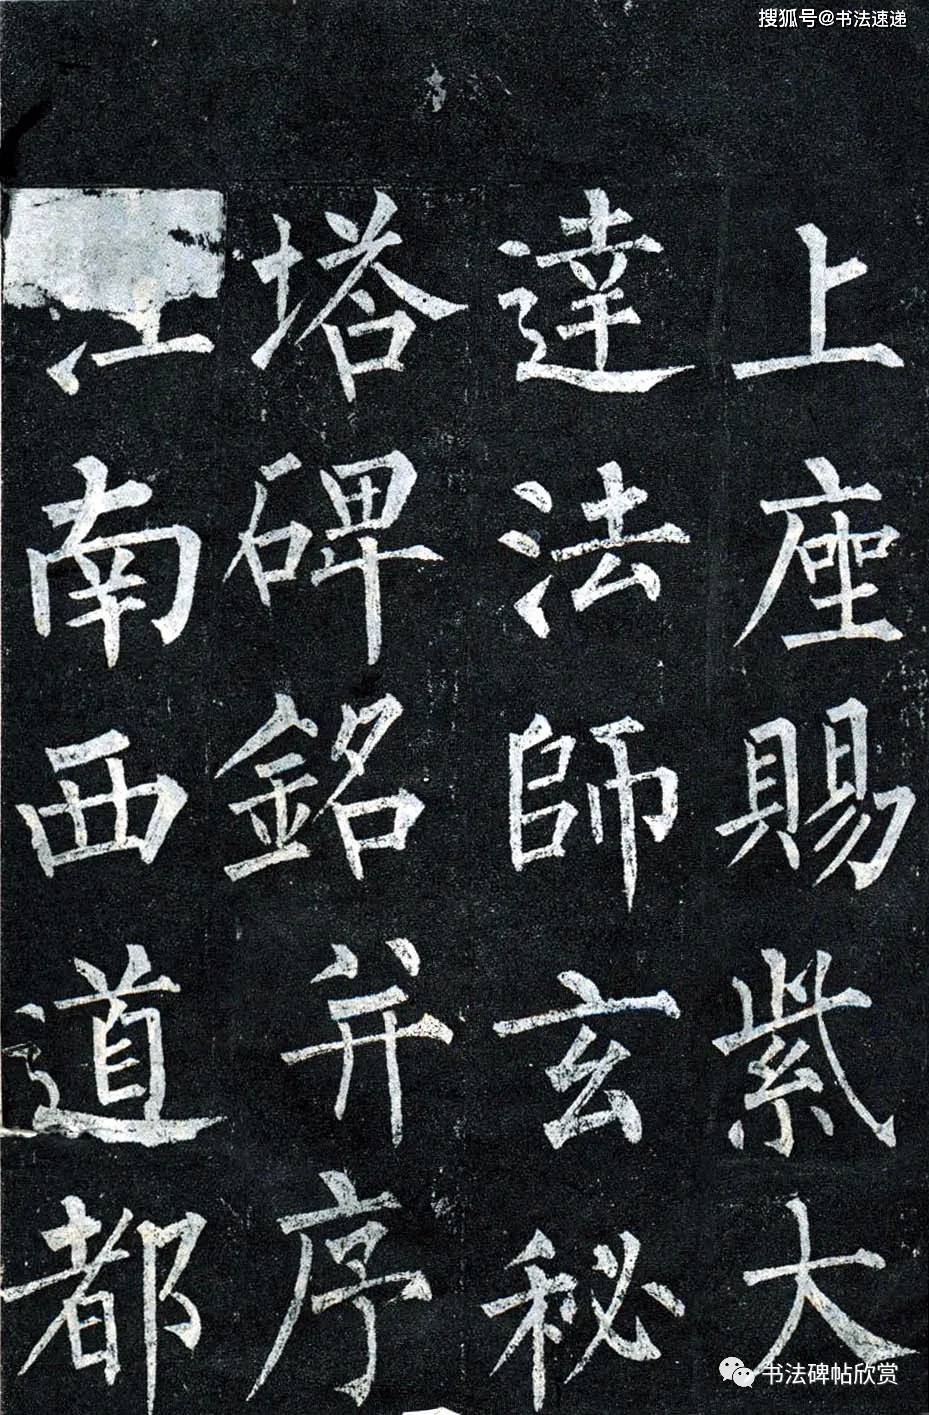 搜狐号@书法速递
上座賜紫大
達法師玄秘
塔碑銘并序
江南西道都
书法碑帖欣赏